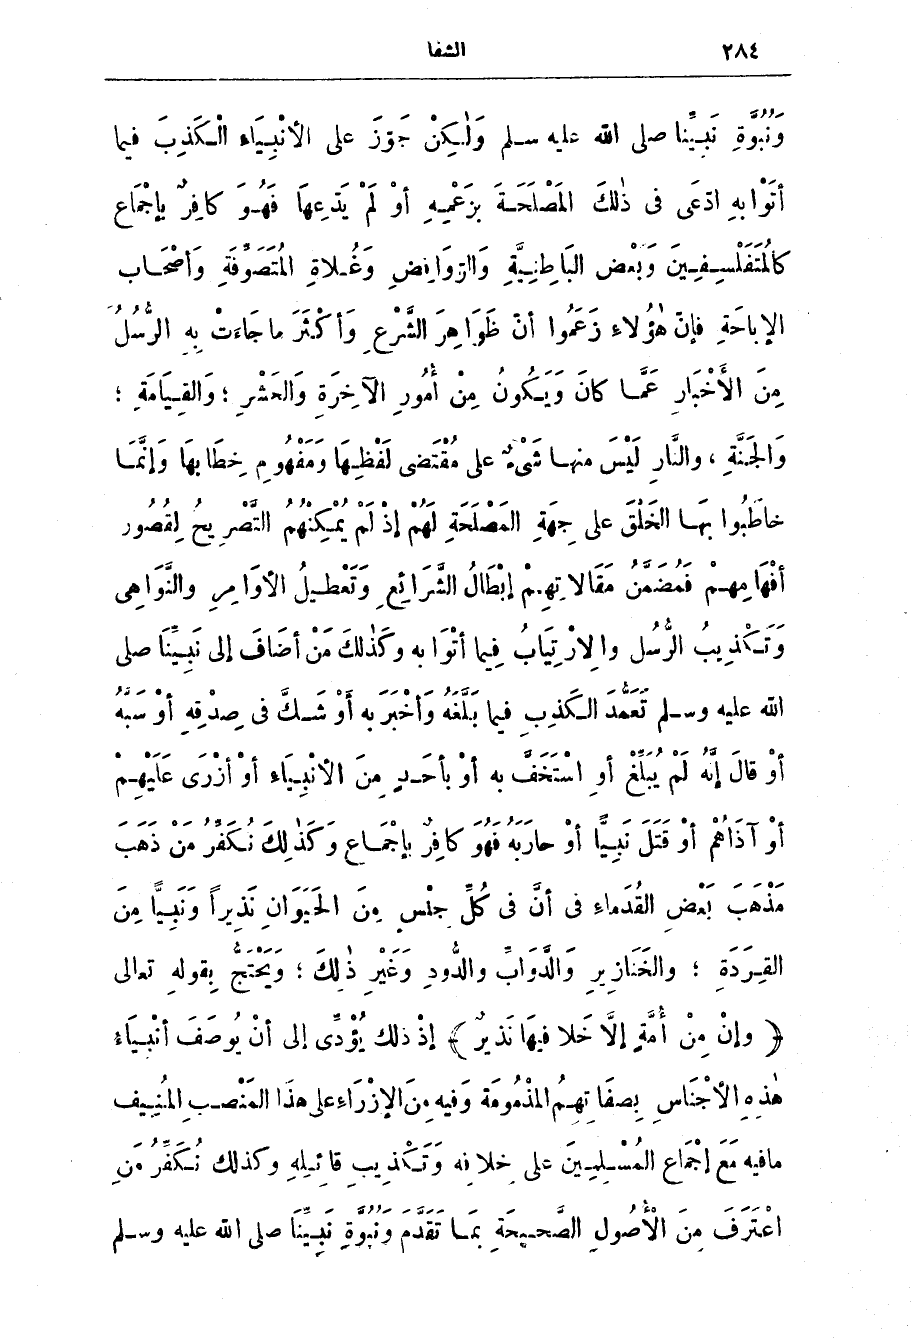 ٢٨٤ الشفا
وَنُبُوَّةِ نَبِيِّنا صلى الله عليه سلم وَلٰكِنْ جَوَّزَ على الأنْبِيَاء الْكَذِبَ فيما
أتَوْا بِهِ ادّعَى فى ذٰلكَ المَصْلَحَةَ بِزَعْمِهِ أوْ لَمْ يَدّعِهَا فَهُوَ كافِرٌ بِإجْمَاع
كالمُتَفَلْسِفِينَ وَبَعْضِ البَاطِنِيَّةِ وَالرّوَافِضِ وَغُلاةِ المُتَصَوِّفَةِ وَأصْحَابِ
الإباحَةِ فإنّ هٰؤُلاء زَعَمُوا أنّ ظَوَاهِرَ الشَّرْعِ وَأكْثَرَ ما جَاءَتْ بِهِ الرُّسُلُ
مِنَ الأَخْبَارِ عَمَّا كانَ وَيَكُونُ مِنْ أُمُورِ الآخِرَةِ وَالحَشْرِ ؛ وَالقِيَامَةِ ؛
وَالجَنَّةِ ، والنَّارِ لَيْسَ منها شَىْءٌ على مُقْتَضى لَفْظِهَا وَمَفْهُومِ خِطَابِهَا وَإنَّمَا
خاطَبُوا بِهَا الخَلْقَ على جِهَةِ المَصْلَحَةِ لَهُمْ إذْ لَمْ يُمْكِنْهُمُ التَّصْرِيحُ لِقُصُور
أفْهَامِهِمْ فَمُضَمَّنُ مَقَالاتِهِمْ إبْطَالُ الشَّرَائِعِ وَتَعْطِيلُ الأوَامِرِ والنَّوَاهِى
وَتَكْذِيبُ الرُّسُلِ والارْتِيَابُ فِيما أتَوْا به وكَذٰلكَ مَنْ أضَافَ إلى نَبِيِّنَا صلى
الله عليه وسلم تَعَمُّدَ الكَذِبِ فيما بَلَّغَهُ وَأخْبَرَ به أَوْ شَكَّ فى صِدْقِهِ أوْ سَبَّهُ
أوْ قالَ إنَّهُ لَمْ يُبَلِّغْ أو اسْتَخَفَّ به أوْ بأحَدٍ مِنَ الأنْبِيَاء أوْ أزْرَى عَلَيْهِمْ
أوْ آذَاهُمْ أوْ قَتَلَ نَبِيًّا أوْ حارَبَهُ فَهُوَ كافِرٌ بِإجْمَاعٍ وَكَذٰلِكَ نُكَفِّرُ مَنْ ذَهَبَ
مَذْهَبَ بَعْضِ القُدَماء فى أنَّ فى كُلِّ جنْسٍ مِنَ الحَيَوَانِ نَذِيراً وَنَبِيًّا مِنَ
القِرَدَةِ ؛ والخَنَازِيرِ وَالدَّوَابِّ والدُّودِ وَغَيْرِ ذٰلِكَ ؛ وَيَحْتَجُّ بِقولهِ تعالى
﴿ وإنْ مِنْ أُمَّةٍ إلَّا خَلا فِيهَا نَذيرٌ ﴾ إذْ ذلك يُؤَدِّى إلى أنْ يُوصَفَ أنْبِيَاءُ
هٰذِهِ الأجْنَاسِ بِصفَاتِهِمُ المَذْمُومَةِ وَفيه مِنَ الإزْرَاء على هذَا المَنْصِبِ المُنِيفِ
مافيه مَعَ إجْمَاع المُسْلِمِينَ على خلافه وَتَكْذِيبِ قائِلِهِ وكذلك نُكَفِّرُ مَنِ
اعْتَرَفَ مِنَ الْأُصُولِ الصَّحِيحَةِ بِمَا تَقَدَّمَ وَنُبُوَّةِ نَبِيِّنَا صلى الله عليه وسلم